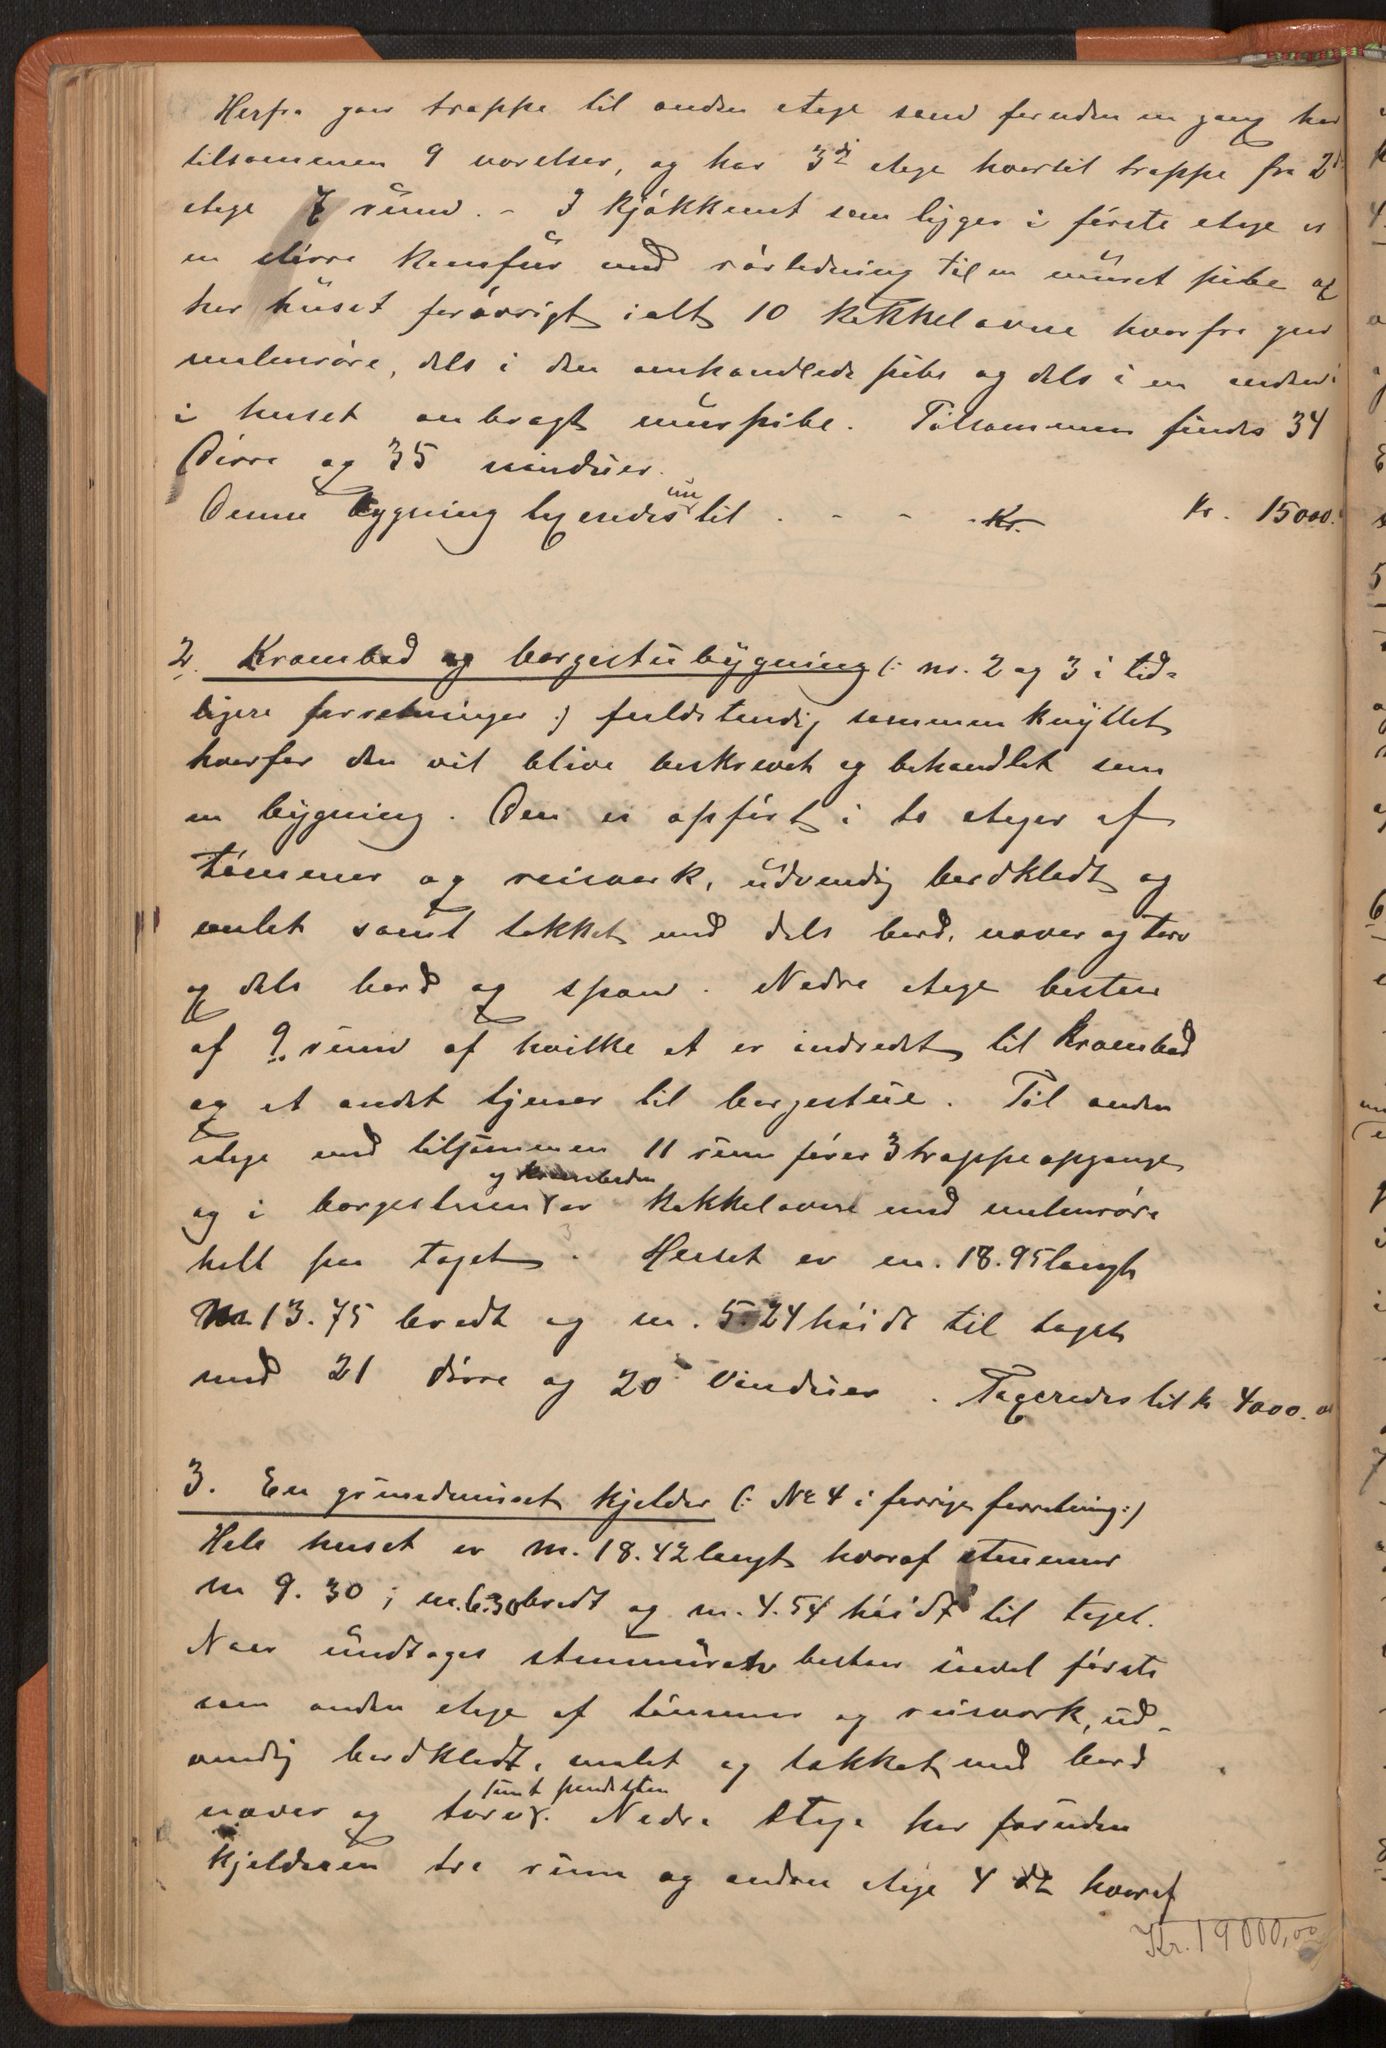 Herfra gaar trappe til anden etage som foruden en gang har
tilsammen 9 værelser, og har 3di etage hvortil trappe fra 2d
etage 7 rum. - I kjøkkenet som ligger i første etage er
en større komfur med rørledning til en muret pibe og
har huset forøvrigt ialt 10 kakkelovne hvorfra gaar
malmrøre, dels i den omhandlede pibe og dels i en anden i
i huset anbragt murpibe. Tilsammen findes 34
Dørre og 35 vinduer.
Denne bygning taxeredes nu til . - - . Kr. Kr. 15000.

2. Krambod og borgestubygning (: nr. 2 og 3 i tid-
ligere forretninger :) fuldstændig sammenknyttet
hvorfor den vil blive beskrevet og behandlet som
en bygning. Den er opført i to etager af
tømmer og reisverk, udvendig bordklædt og
malet samt tækket med dels bord, næver og torv
og dels bord og spaan. Nedre etage bestaar
af 9 rum af hvilke et er indredet til krambod
og et andet tjener til borgestue. Til anden
etage med tilsammen 11 rum fører 3 trappeopgange
og i borgestuen og kramboden er kakkelovne med malmrøre
helt paa taget. Huset er m. 18.95 langt
m. 13.75 bredt og m. 5.24 høidt til taget
med 21 dørre og 20 vinduer. Taxeredes til kr 4000.00

3. En grundmuret kjelder (: No 4 i forrige forretning :)
Hele huset er m. 18.42 langt hvoraf stenmur
m 9.30; m. 6.30 bredt og m. 4.54 høidt til taget.
Naar undtages stenmuren bestaar saavel første
som anden etage af tømmer og reisverk, ud-
vendig bordklædt, malet og tækket med bord
næver og torv samt pandesten. Nedre etage har foruden
kjelderen tre rum og anden etage 4 do hvoraf
Kr. 19000,00